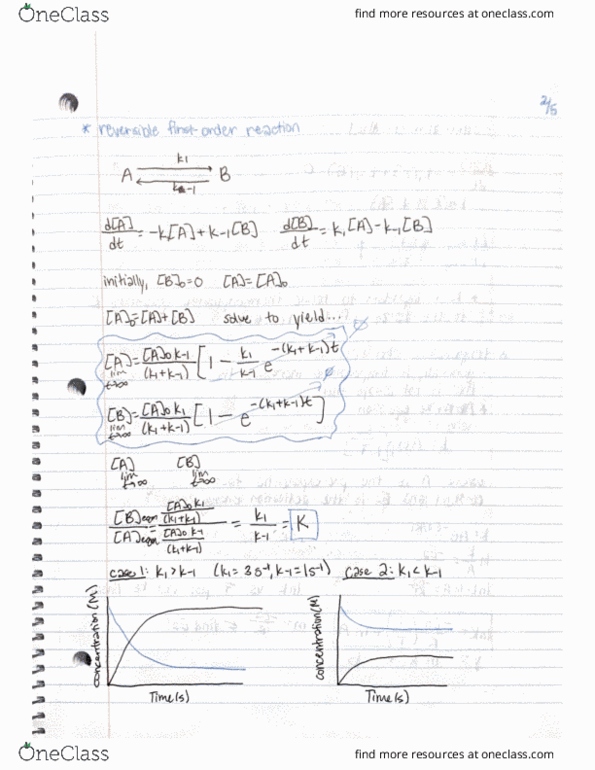 OneClass find more resources at oneclass.com
2/5
* reversible first-order reaction
k1
A B
k-1
d[A]/dt = -k1[A] + k-1[B] d[B]/dt = k1[A] - k-1[B]
initially, [B]0=0 [A]=[A]0
[A]0=[A]+[B] solve to yield...
[A] = [A]0 k-1/(k1+k-1) [1 - k1/k-1 e^-(k1+k-1)t
lim t→∞
[B] = [A]0 k1/(k1+k-1) [1 - e^-(k1+k-1)t]
lim t→∞
[A] [B]
lim t→∞ lim t→∞
[B]eqm/[A]eqm = [A]0 k1/(k1+k-1) / [A]0 k-1/(k1+k-1) = k1/k-1 = K
case 1: k1 > k-1 (k1 = 3 s-1, k-1 = 1 s-1) case 2: k1 < k-1
concentration (M) concentration (M)
Time (s) Time (s)
OneClass find more resources at oneclass.com